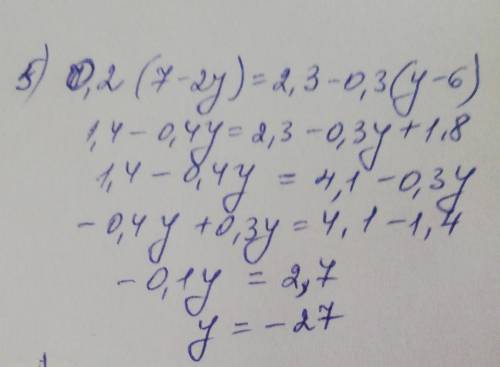 5) 0,2 (7-2y)=2,3-0,3(y-6)
1,4-0,4y=2,3-0,3y+1,8
1,4-0,4y = 4,1-0,3y
-0,4y+0,3y=4,1-1,4
-0,1y = 2,7
y = -27